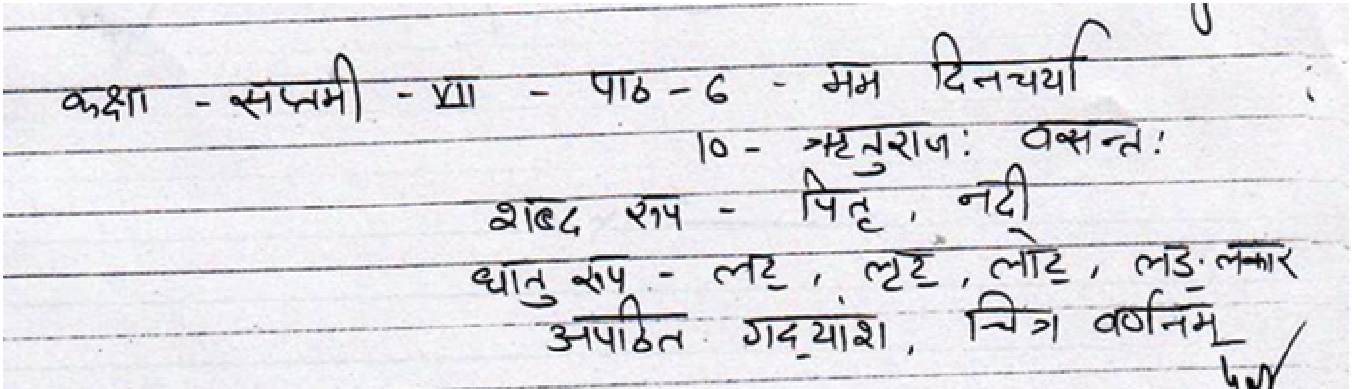 कक्षा - सप्तमी - VII - पाठ - 6 - मम दिनचर्या
10 - ऋतुराज: वसन्त:
शब्द रूप - पितृ, नदी
धातु रूप - लट्, लृट्, लोट्, लङ् लकार
अपठित गद्यांश, चित्र वर्णनम्